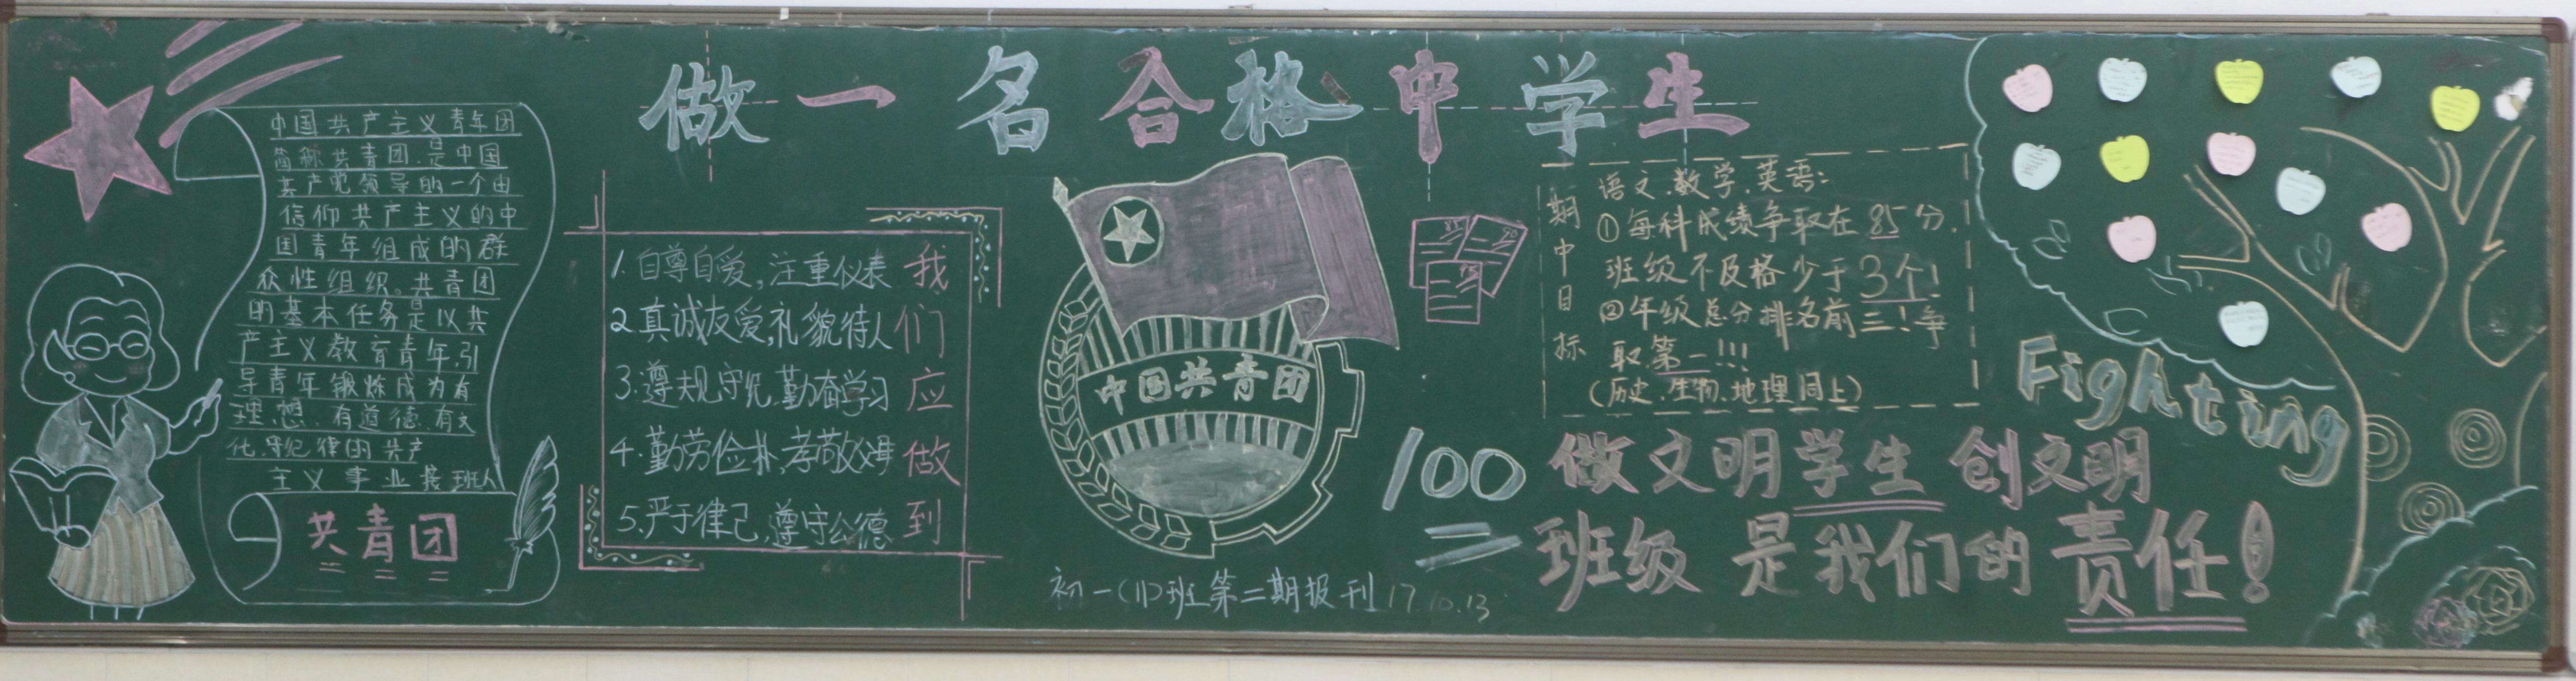 做一名合格中学生
中国共产主义青年团
简称共青团,是中国
共产党领导的一个由
信仰共产主义的中
国青年组成的群
众性组织。共青团
的基本任务是以共
产主义教育青年,引
导青年锻炼成为有
理想、有道德、有文
化、守纪律的共产
主义事业接班人
共青团
我们应做到
1.自尊自爱,注重仪表
2.真诚友爱,礼貌待人
3.遵规守纪,勤奋学习
4.勤劳俭朴,孝敬父母
5.严于律己,遵守公德
中国共青团
初一(11)班第二期报刊17.10.13
期中目标
语文、数学、英语:
①每科成绩争取在85分,
班级不及格少于3个!
②年级总分排名前三!争
取第一!!!
(历史、生物、地理同上)
100
做文明学生 创文明
班级是我们的责任!
Fighting